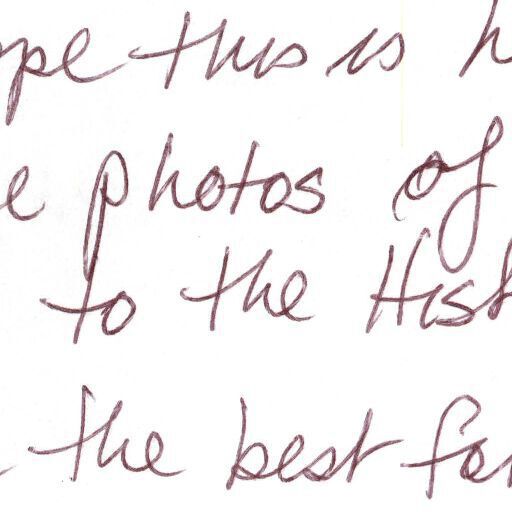 ope this is h
e photos of
to the Hist
the best for